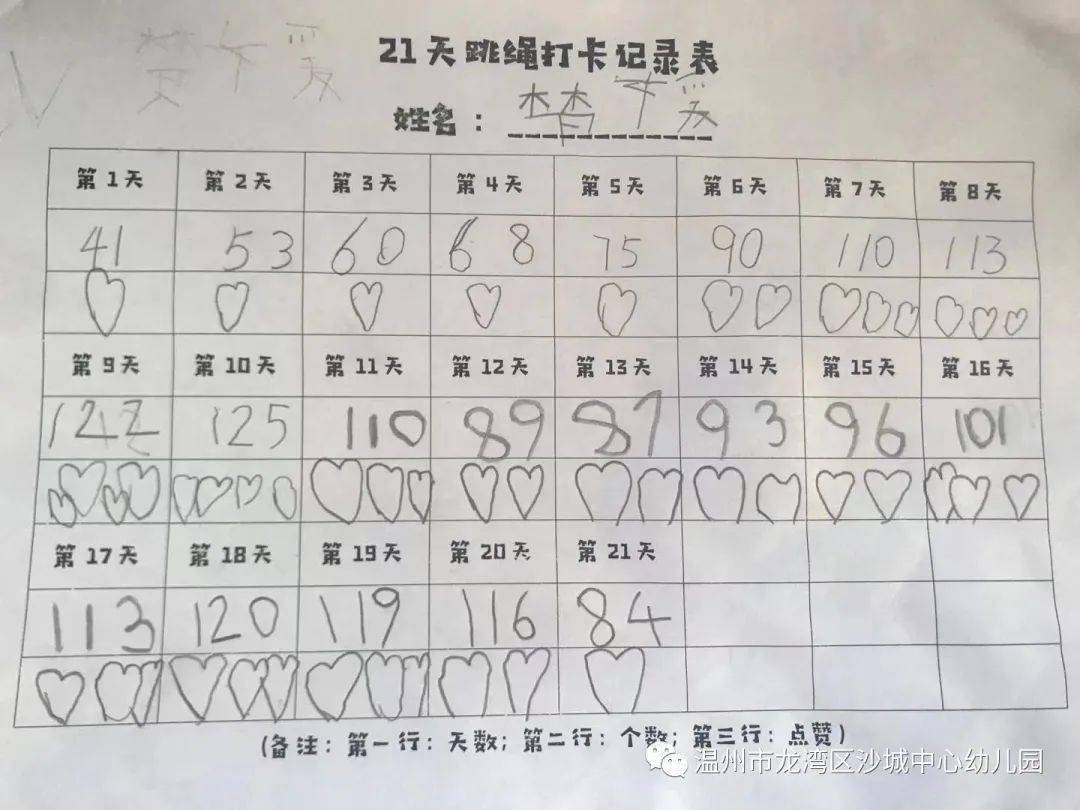 21天跳绳打卡记录表
姓名：
第1天 第2天 第3天 第4天 第5天 第6天 第7天 第8天
41 53 60 68 75 90 110 113
第9天 第10天 第11天 第12天 第13天 第14天 第15天 第16天
122 125 110 89 87 93 96 101
第17天 第18天 第19天 第20天 第21天
113 120 119 116 84
(备注：第一行：天数；第二行：个数；第三行：点赞)
温州市龙湾区沙城中心幼儿园